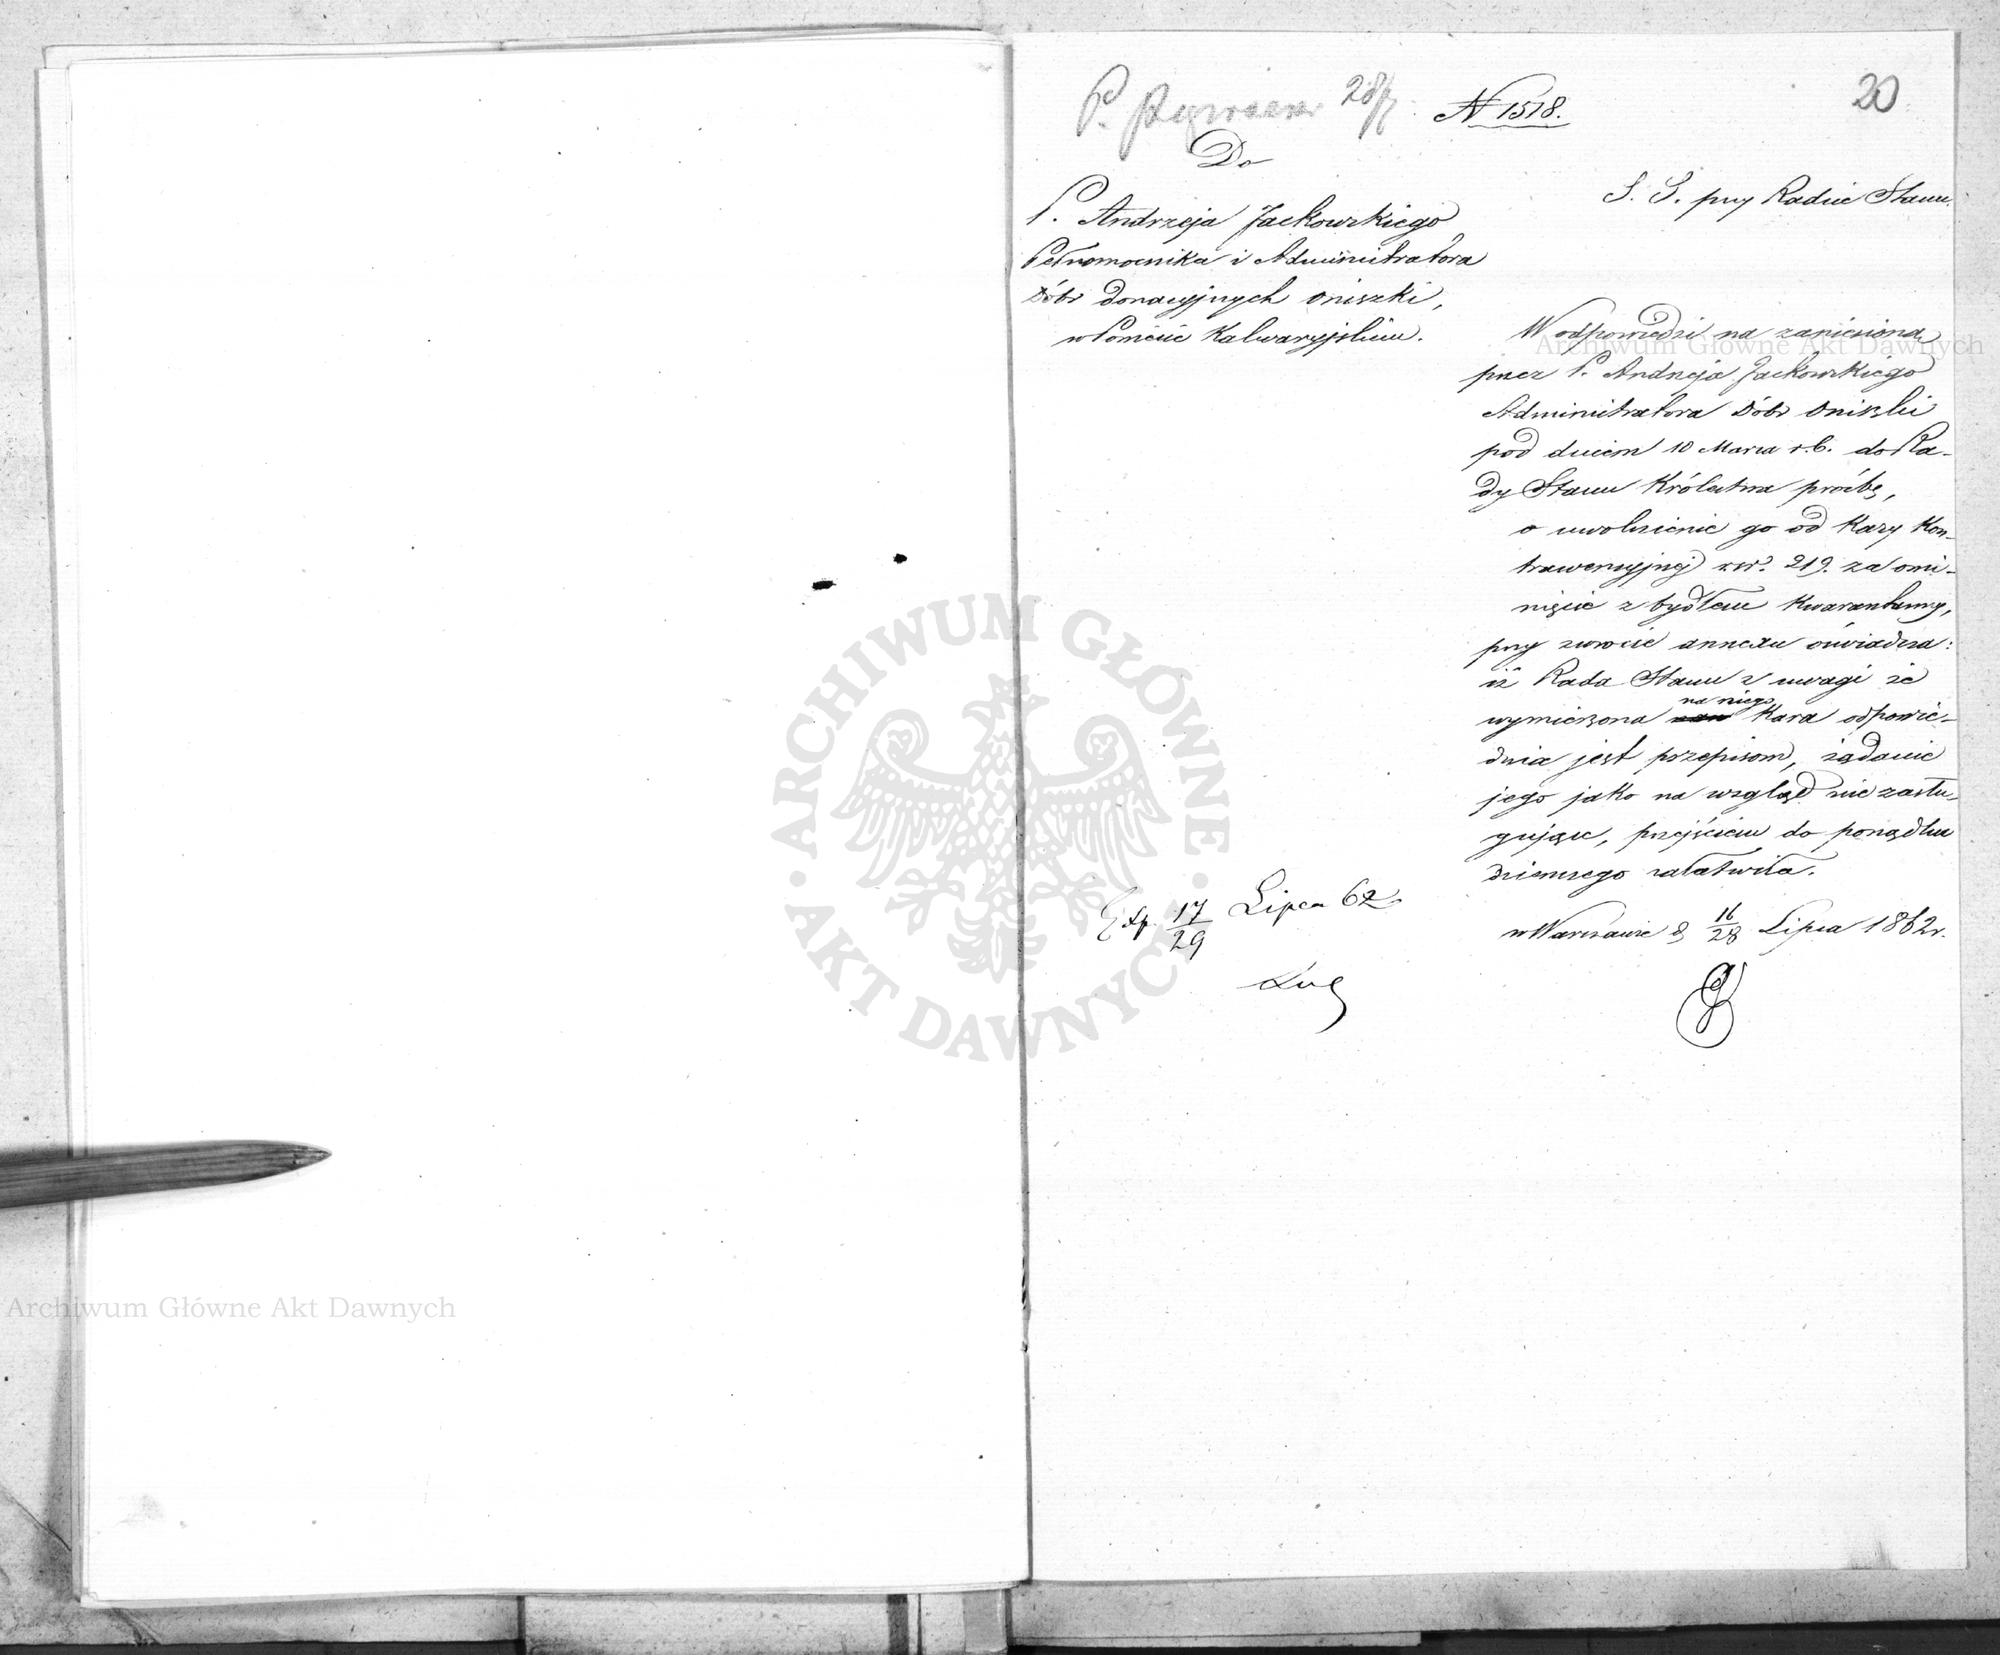 P. 28/7
N 1518.
20
Do
P. Andrzeja Jackowskiego
Pełnomocnika i Administratora
Dóbr donacyjnych Oniszki,
w Powiecie Kalwaryjskim.
S. S. przy Radzie Stanu.
W odpowiedzi na zaniesioną
przez P. Andrzeja Jackowskiego
Administratora Dóbr Oniszki
pod dniem 10 Marca r.b. do Ra-
dy Stanu Królestwa prośbę,
o uwolnienie go od kary kon-
trawencyjnej rsr. 219. za omi-
nięcie z bydłem kwarantanny,
przy zwrocie annexu oświadcza:
iż Rada Stanu z uwagi że
wymierzona na niego kara odpowie-
dnia jest przepisom, żądanie
jego jako na wzgląd nie zasłu-
gujące, przejściem do porządku
dziennego załatwiła.
w Warszawie d 16/28 Lipca 1862 r.
Exp. 17/29 Lipca 62
ARCHIWUM GŁÓWNE AKT DAWNYCH
Archiwum Główne Akt Dawnych
Archiwum Główne Akt Dawnych